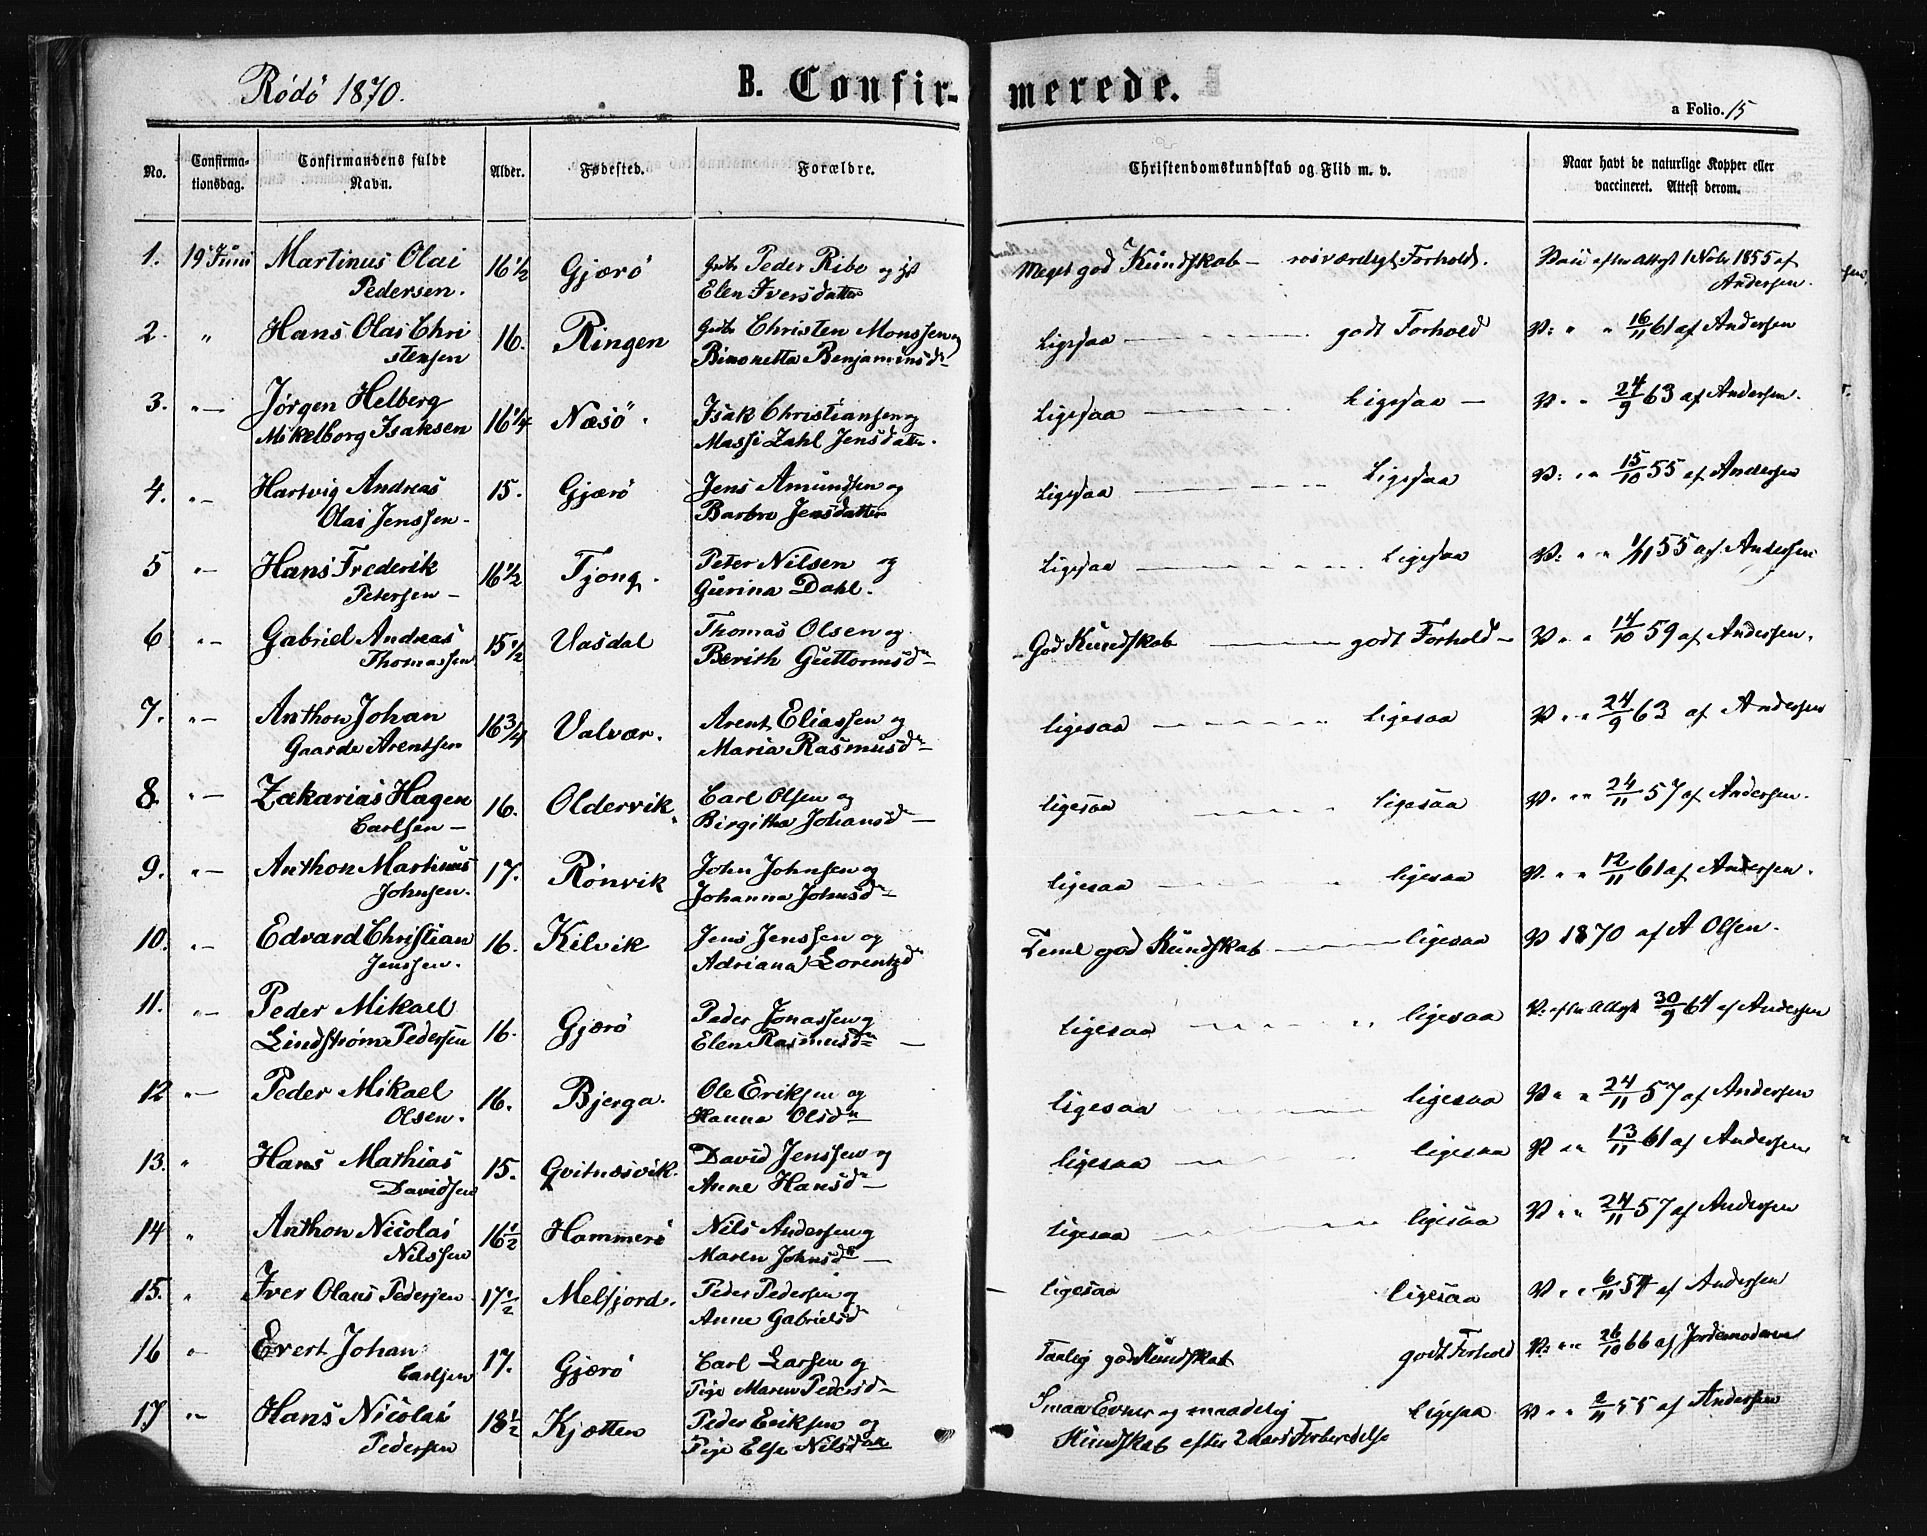 Rödö 1870.
B. Confir-
merede.
a Folio. 15
No.
Confirma-
tionsdag.
Confirmandens fulde
Navn.
Alder.
Fødested.
Forældre.
Christendomskundskab og Flid m. v.
Naar havt de naturlige Kopper eller
vaccineret. Attest derom.
1. 19 Juni Martinus Olai 16 1/2 Gjærö Peder Ribe og Meget god Kundskab — Forhold. 1855 af
Pedersen. Elen Iversdatter Andersen.
2. " Hans Olai Chri 16. Ringen Christen Monssen og Ligesaa godt Forhold V: " " 16/11 61 af Andersen
stensen Benjaminsd
3. "— Jörgen Helberg 16 1/4 Næsö. Isak Christiansen og Ligesaa Ligesaa — V. " 24/9 63 af Andersen.
Mikelborg Isaksen Massi Zahl Jensdatter.
4. "— Hartvig Andreas 15. Gjærö Jens Amundsen og Ligesaa Ligesaa V: " " 15/10 55 af Andersen
Olai Jenssen. Barbro Jensdatter
5 "— Hans Frederik 16 1/2 Tjong. Peter Nilsen og Ligesaa Ligesaa V: " " 1/11 55 af Andersen
Petersen — Gurina Dahl.
6 "— Gabriel Andreas 15 1/2 Vasdal Thomas Olsen og God Kundskab godt Forhold — V. " 14/10 59 af Andersen.
Thomassen Berith Guttormsd
7. "— Anthon Johan 16 3/4 Valvær. Arent Eliassen og ligesaa ligesaa V. " " 24/9 63 af Andersen
Gaarde Arentsen Maria Rasmusd
8. "— Zakarias Hagen 16. Oldervik. Carl Olsen og ligesaa ligesaa V. " " 24/11 57 af Andersen.
Carlsen — Birgitha Johansd —
9. "— Anthon Martinus 17. Rönvik John Johnsen og ligesaa ligesaa V. " " 12/11 61 af Andersen.
Johnsen. Johanna Johnsd
10. "— Edvard Christian 16. Kilvik Jens Jenssen og god Kundskab ligesaa V 1870 af A Olsen.
Jenssen. Adriana Lorentzd
11. "— Peder Mikael 16. Gjærö Peder Jonassen og ligesaa ligesaa V: 30/9 64 af Andersen
Lindström Pedersen Elen Rasmusd —
12 "— Peder Mikael 16. Bjerga. Ole Eriksen og ligesaa ligesaa V " " 24/11 57 af Andersen
Olsen. Hanna Olsd
13. " Hans Mathias 15. Qvitnæsvik. David Jenssen og ligesaa ligesaa V " " 13/11 61 af Andersen
Davidsen Anne Hansd —
14 " Anthon Nicolai 16 1/2 Hammerö Nils Andersen og ligesaa ligesaa V " " 24/11 57 af Andersen
Nilssen Maren Johnsd —
15. " Iver Olaus Pedersen 17 1/2 Melfjord. Peder Pedersen og ligesaa ligesaa V " " 6/11 54 af Andersen
Anne Gabrielsd
16 " Evert Johan 17. Gjærö Carl Larsen og Taalig god Kundskab godt Forhold V: " " 26/10 66 af Jordemoderen
Carlsen Pige Maren Pedersd —
17 "— Hans Nicolai 18 1/2 Kjætten Peder Eriksen og Smaa Evner og maadelig Ligesaa V " " 2/11 55 af Andersen
Pedersen Pige Else Nilsd Kundskab efter 2 aars Forberedelse